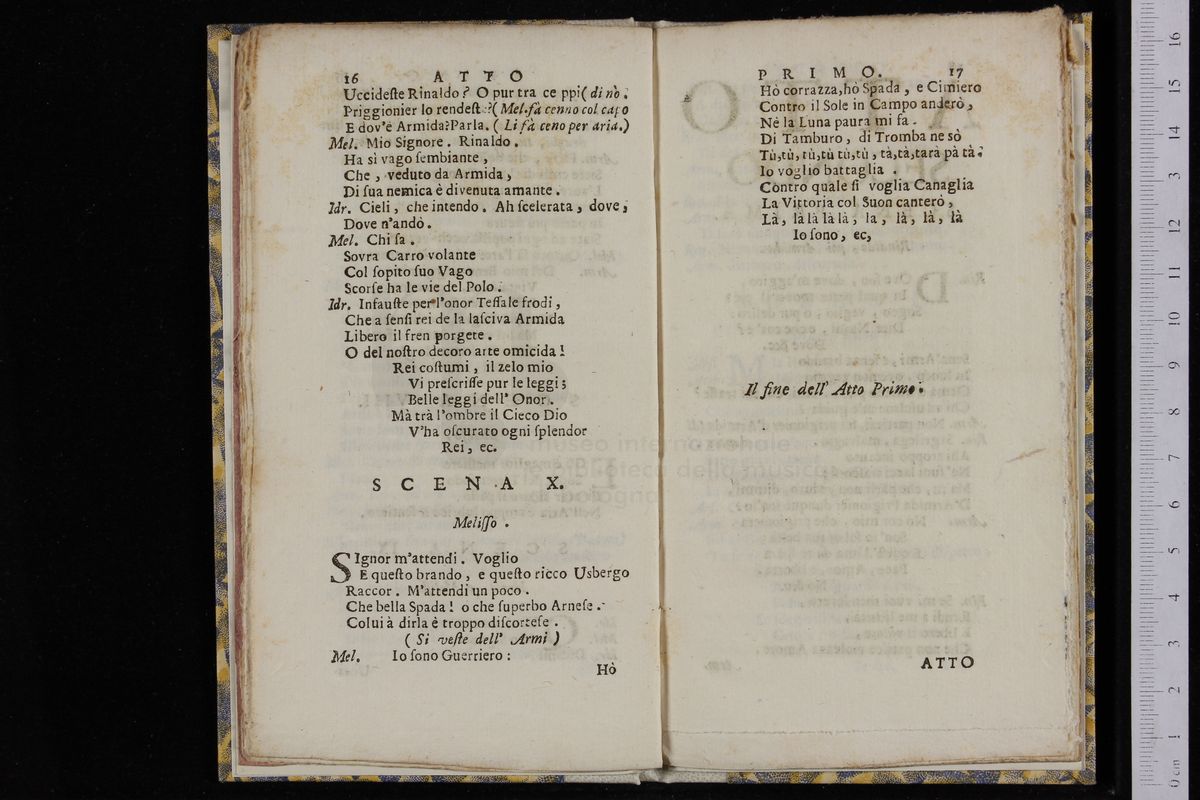 16 ATTO
Uccideſte Rinaldo? O pur tra ce ppi ( di nò.
Priggionier lo rendeſte?( Mel. fà cenno col capo
E dov'è Armida? Parla. ( Li fà ceno per aria.)
Mel. Mio Signore. Rinaldo.
Ha sì vago ſembiante,
Che, veduto da Armida,
Di ſua nemica è divenuta amante.
Idr. Cieli, che intendo. Ah ſcelerata, dove,
Dove n'andò.
Mel. Chi ſa.
Sovra Carro volante
Col ſopito ſuo Vago
Scorſe ha le vie del Polo.
Idr. Infauſte per l'onor Teſſale frodi,
Che a ſenſi rei de la laſciva Armida
Libero il fren porgete.
O del noſtro decoro arte omicida!
Rei coſtumi, il zelo mio
Vi preſcriſſe pur le leggi;
Belle leggi dell' Onor.
Mà trà l'ombre il Cieco Dio
V'ha oſcurato ogni ſplendor
Rei, ec.
SCENA X.
Meliſſo.
SIgnor m'attendi. Voglio
E queſto brando, e queſto ricco Usbergo
Raccor. M'attendi un poco.
Che bella Spada! o che ſuperbo Arneſe.
Colui à dirla è troppo diſcorteſe.
( Si veſte dell' Armi )
Mel. Io ſono Guerriero:
Hò
PRIMO. 17
Hò corrazza, hò Spada, e Cimiero
Contro il Sole in Campo anderò,
Nè la Luna paura mi fa.
Di Tamburo, di Tromba ne sò
Tù, tù, tù, tù tù, tù, tà, tà, tara pà tà.
Io voglio battaglia.
Contro quale ſi voglia Canaglia
La Vittoria col Suon canterò,
Là, là là là là, la, là, là, là
Io ſono, ec,
Il fine dell' Atto Primo.
ATTO
museo internazionale
e biblioteca della musica
di bologna
0 cm 1 2 3 4 5 6 7 8 9 10 11 12 13 14 15 16